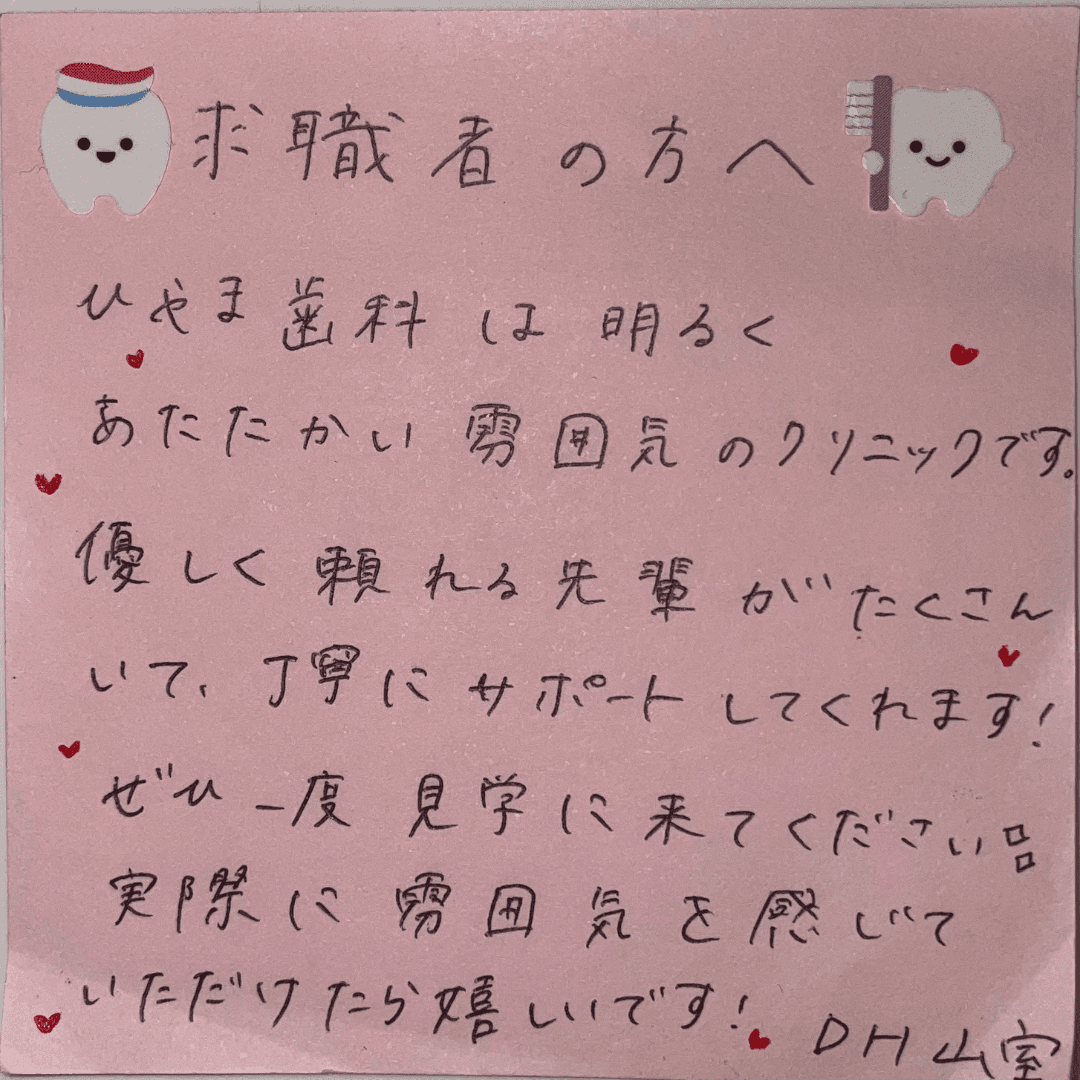 求職者の方へ
ひやま歯科は明るく
あたたかい雰囲気のクリニックです。
優しく頼れる先輩がたくさん
いて、丁寧にサポートしてくれます!
ぜひ一度見学に来てください
実際に雰囲気を感じて
いただけたら嬉しいです!
DH山室